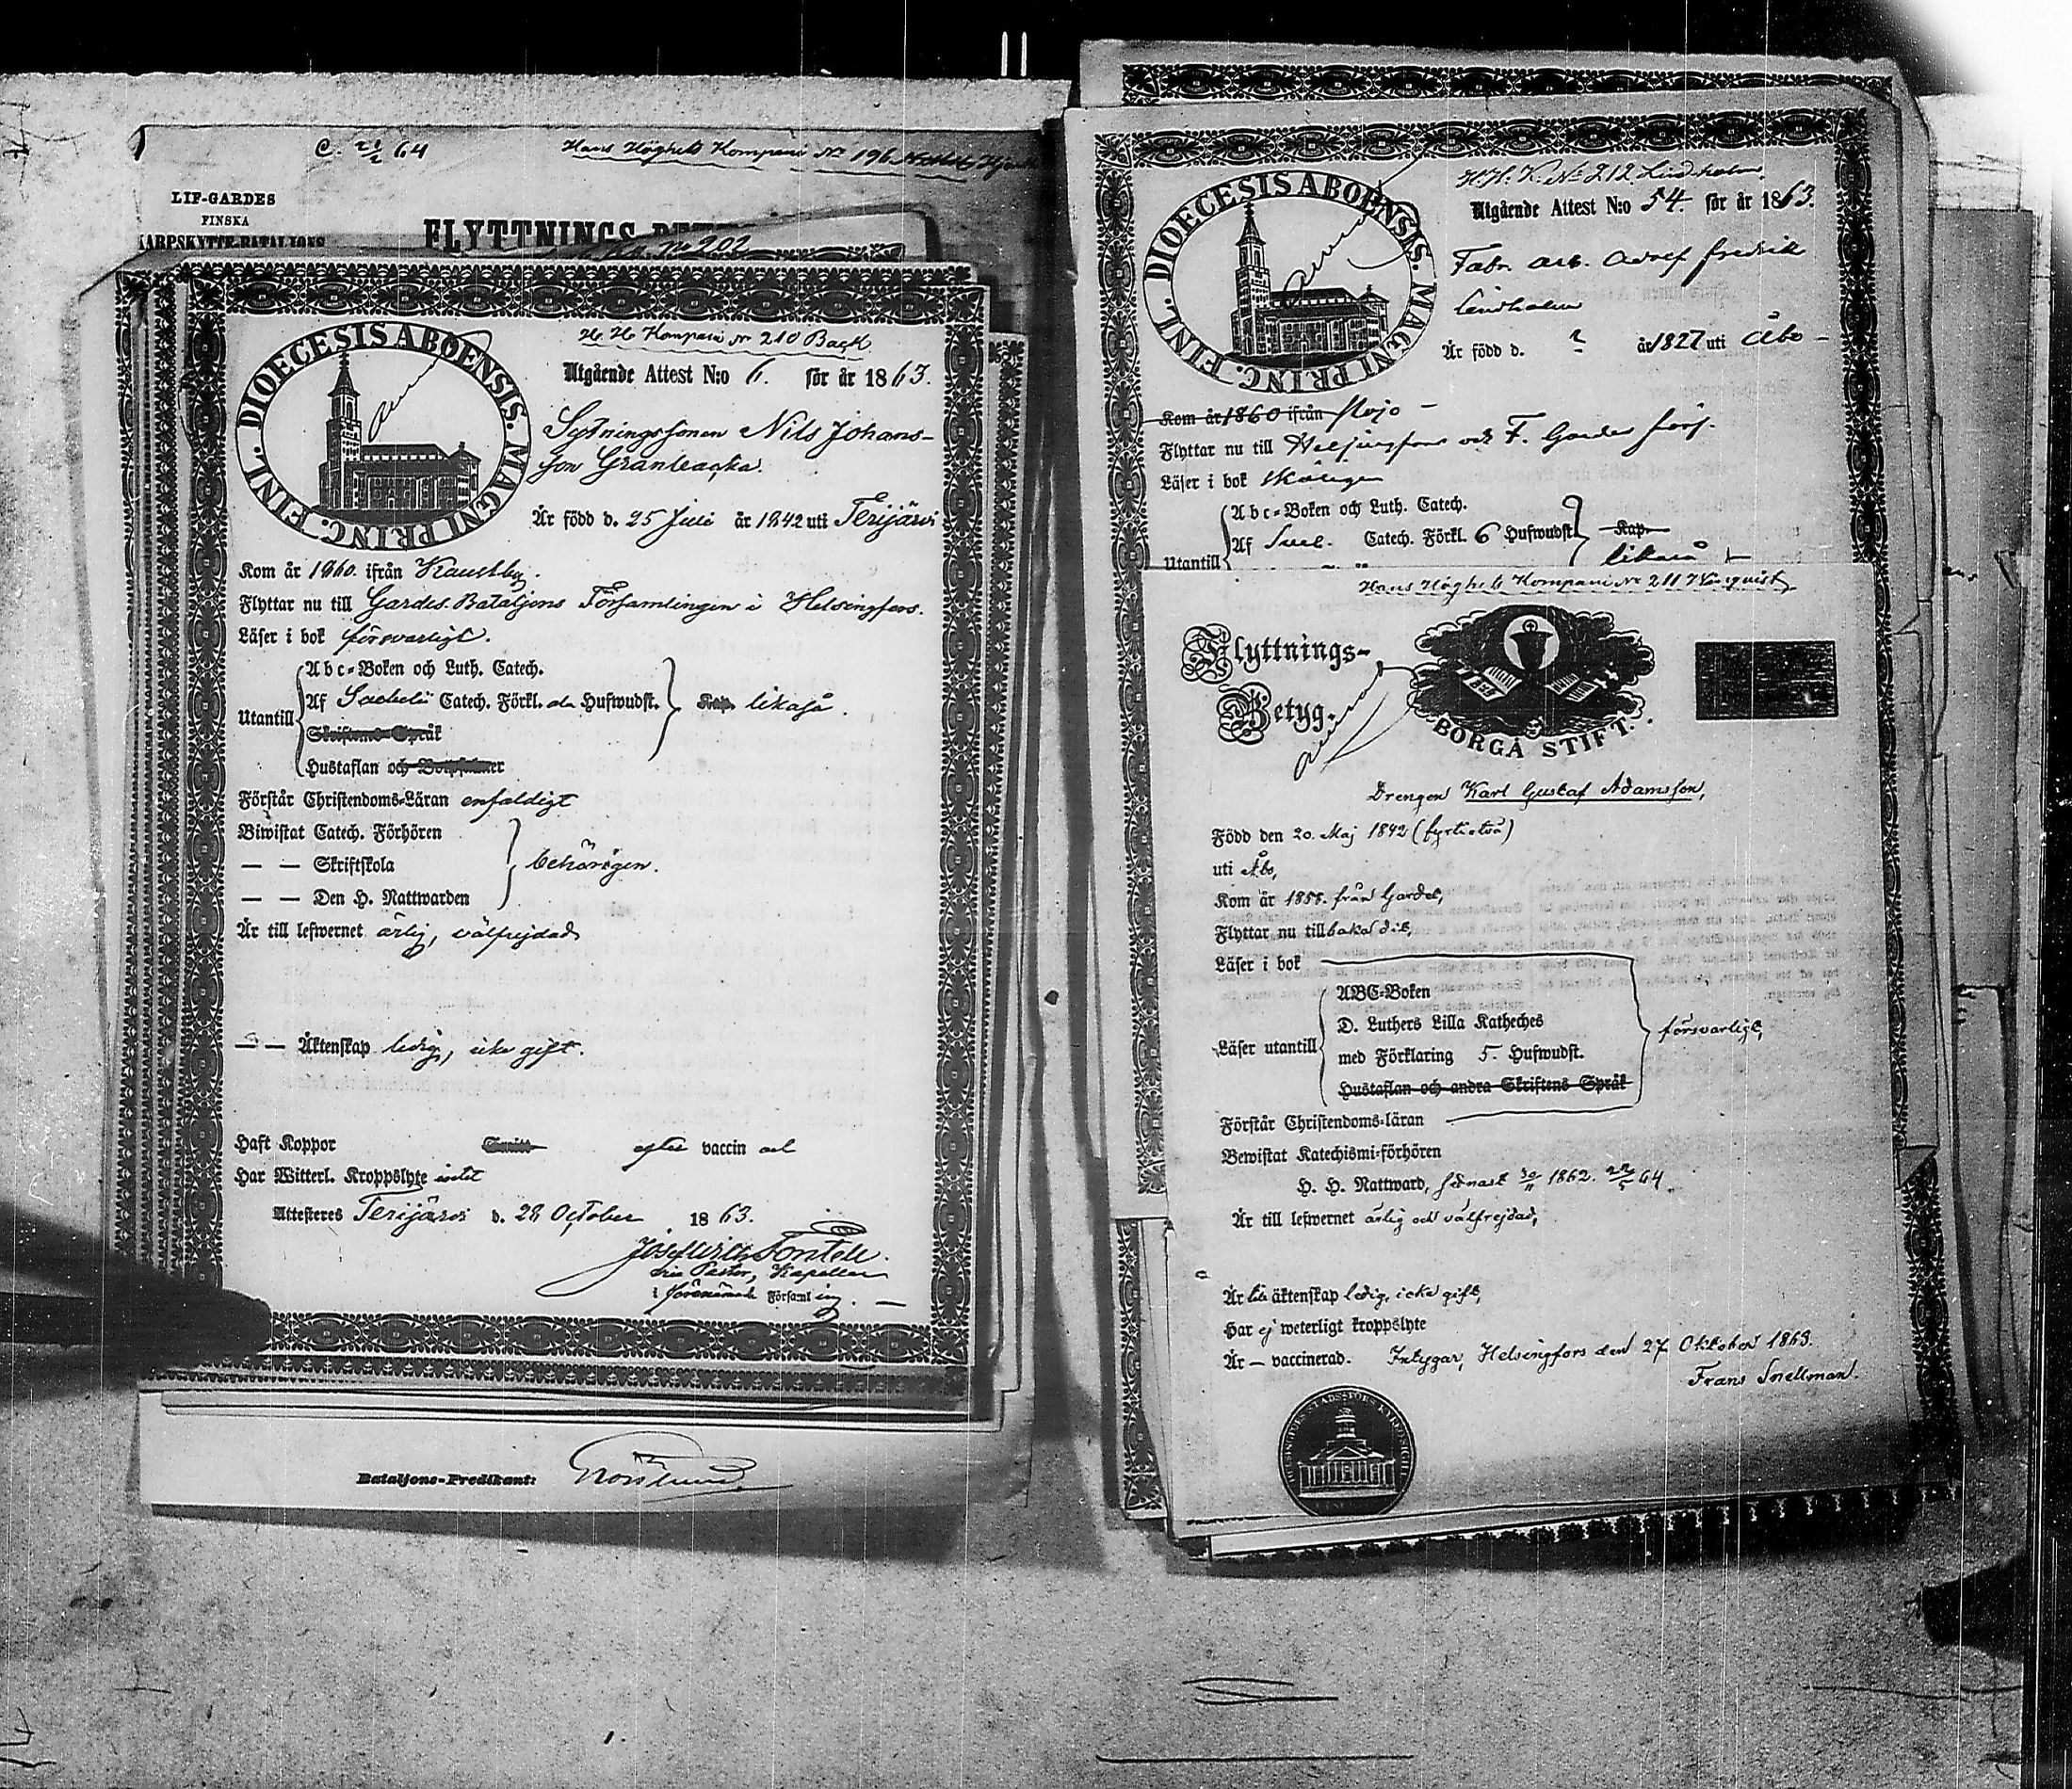 C. 21/2 64
Hans Höghets Kompani No 196
LIF-GARDES
FINSKA
SKARPSKYTTE-BATALJONS
FLYTTNINGS-BETYG
No 202
DIOECESIS ABOENSIS. MAGNI PRINC. FINL.
H. H. Kompani No 210 Back
Utgående Attest N:o 6. för år 1863.
Sytningssonen Nils Johans-
son Granbacka.
Är född d. 25 Juli år 1842 uti Terijärvi
Kom år 1860. ifrån Kaustby.
Flyttar nu till Gardes Bataljons Församlingen i Helsingfors.
Läser i bok försvarligt.
Abc-Boken och Luth. Catech.
Utantill Af Sachelii Catech. Förkl. alla Hufwudst. Kap. likaså.
Skriftens Språk
Hustaflan och Botpsalmer
Förstår Christendoms-Läran enfaldigt
Biwistat Catech. Förhören
— — Skriftskola behörigen.
— — Den H. Nattwarden
Är till lefwernet ärlig, välfrejdad
— — Äktenskap ledig, icke gift.
Haft Koppor efter vaccin
Har Witterl. Kroppslyte intet
Attesteres Terijärvi d. 28 October 1863.
Fontell.
vice Pastor, Kapellan
i förenämnde Församling.
Bataljons-Predikant:
H. H. K. No 212 Lindholm
DIOECESIS ABOENSIS. MAGNI PRINC. FINL.
Utgående Attest N:o 54. för år 1863.
Fabr. arb. Adolf Fredrik
Lindholm
Är född d. ? år 1827 uti Åbo —
Kom år 1860 ifrån
Flyttar nu till Helsingfors och F. Gardes förs.
Läser i bok
Abc-Boken och Luth. Catech.
Af Catech. Förkl. 6 Hufwudst. Kap
Utantill likaså
Hans Höghets Kompani No 211
Flyttnings-
Betyg.
BORGÅ STIFT.
Drengen Karl Gustaf Adamsson,
Född den 20. Maj 1842 (fyrtiotvå)
uti Åbo,
Kom år 1858. från Gardet,
Flyttar nu tillbaka dit,
Läser i bok
ABC-Boken
D. Luthers Lilla Katheches
Läser utantill med Förklaring 5. Hufwudst. försvarligt,
Hustaflan och andra Skriftens Språk
Förstår Christendoms-läran
Bewistat Katechismi-förhören
H. H. Nattward, senast 30/11 1862.
Är till lefwernet ärlig och välfrejdad,
Är till äktenskap ledig, icke gift,
Har ej weterligt kroppslyte
Är — vaccinerad. Intygar, Helsingfors den 27 Oktober 1863.
Frans Snellman.